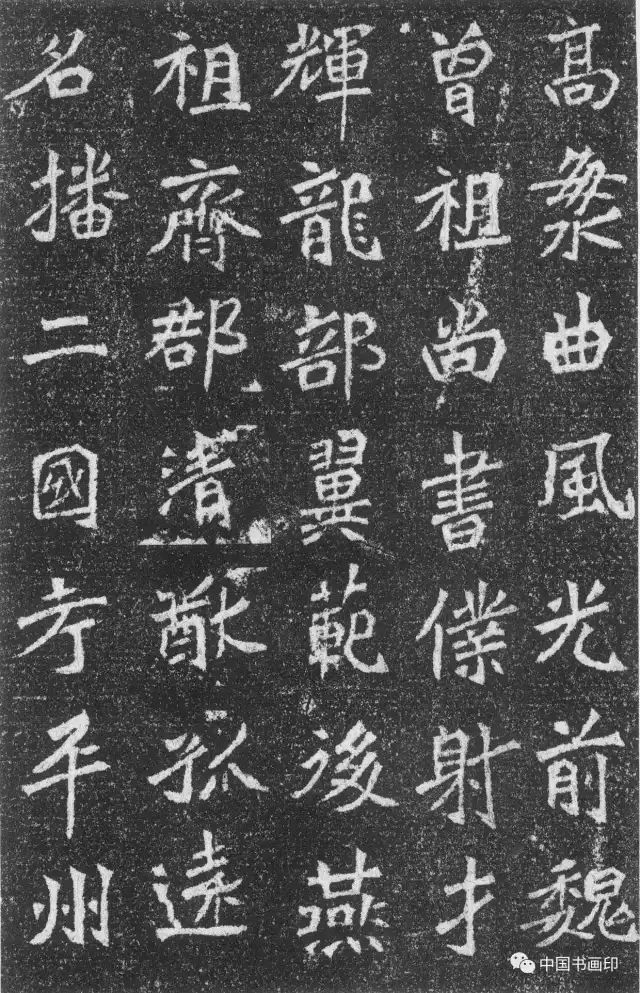 髙曲風光前魏
曾祖尚書僕射才
輝龍部翼範後燕
祖齊郡清猷孤遠
名播二國考平州
中国书画印